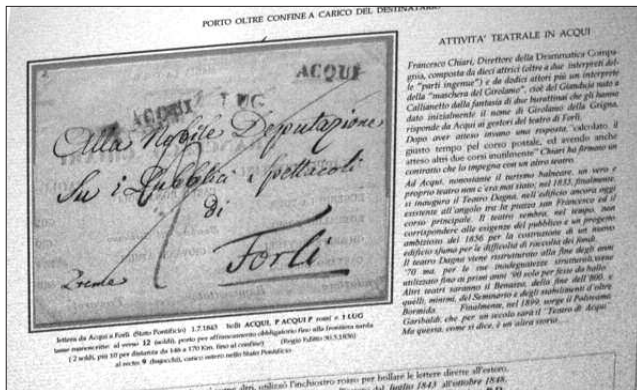 PORTO OLTRE CONFINE A CARICO DEL DESTINATARIO
ACQUI
ACQUI 1 LUG
Alla Nobile Deputazione
Su i Pubblici spettacoli
di
Forlì
lettera da Acqui a Forlì (Stato Pontificio) 1.7.1843 bolli ACQUI, P ACQUI P rossi e 1 LUG
tasse manoscritte: al verso 12 (soldi), porto per affrancamento obbligatorio fino alla frontiera sarda
( 2 soldi, più 10 per distanza da 146 a 170 Km. fino al confine) (Regio Editto 30.5.1836)
al recto 9 (bajocchi), carico estero nello Stato Pontificio
ATTIVITA' TEATRALE IN ACQUI
Francesco Chiari, Direttore della Drammatica Compa-
gnia, composta da dieci attrici (oltre a due interpreti del-
le "parti ingenue") e da dodici attori più un interprete
della "maschera del Girolamo", cioè del Gianduja nato a
Callianetto dalla fantasia di due burattinai che gli hanno
dato inizialmente il nome di Girolamo della Grigna,
risponde da Acqui ai gestori del teatro di Forlì.
Dopo aver atteso invano una risposta, "calcolato il
giusto tempo pel corso postale, ed avendo anche
atteso altri due corsi inutilmente" Chiari ha firmato un
contratto che lo impegna con un altro teatro.
Ad Acqui, nonostante il turismo balneare, un vero e
proprio teatro non c'era mai stato; nel 1835, finalmente,
si inaugura il Teatro Dagna, nell'edificio ancora oggi
esistente all'angolo tra la piazza san Francesco ed il
corso principale. Il teatro sembra, nel tempo, non
corrispondere alle esigenze del pubblico e un progetto
ambizioso del 1856 per la costruzione di un nuovo
edificio sfuma per le difficoltà di raccolta dei fondi.
Il teatro Dagna viene ristrutturato alla fine degli anni
'70 ma, per le sue inadeguatezze strutturali, viene
utilizzato fino ai primi anni '90 solo per feste da ballo.
Altri teatri saranno il Benazzo, della fine dell'800, e
quelli, minori, del Seminario e degli stabilimenti d'oltre
Bormida. Finalmente, nel 1899, sorge il Politeama
Garibaldi, che per un secolo sarà il "Teatro di Acqui".
Ma questa, come si dice, è un'altra storia...
altri, utilizzò l'inchiostro rosso per bollare le lettere dirette all'estero.
luglio 1843 all'ottobre 1848.